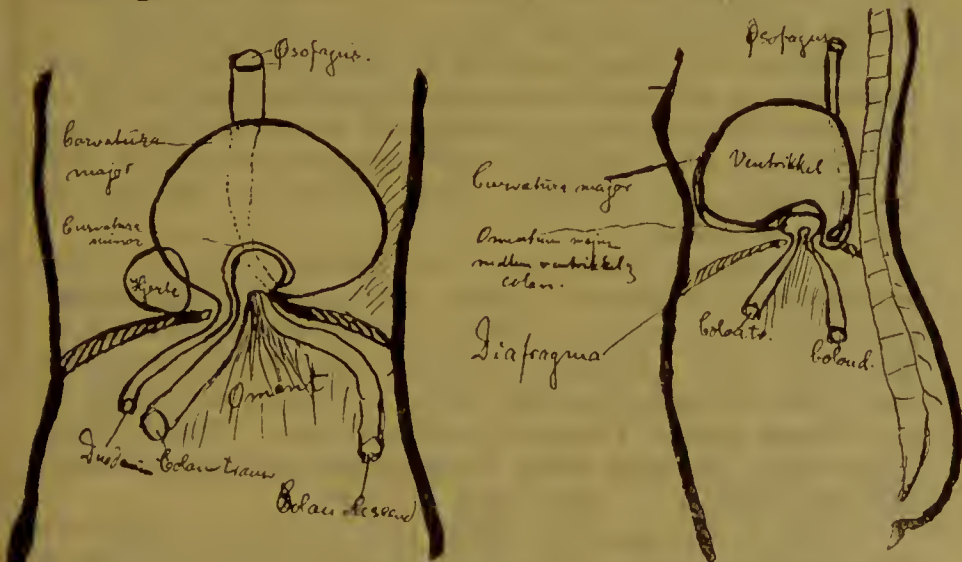 Øsofagus.
Curvatura
major
Curvatura
minor
Hjerte
Oment
Duodenum
Colon transv
Colon descend
Øsofagus
Ventrikkel
Curvatura major
Omentum major
mellem ventrikkel og
colon.
Diafragma
Colon tr.
Colon d.